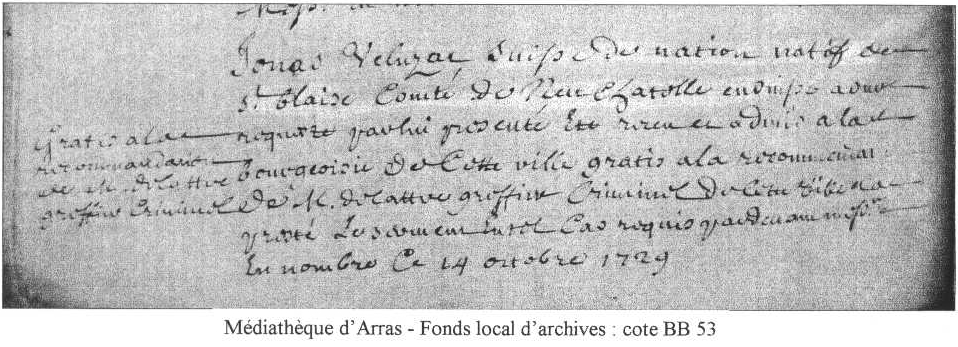 Jonas Veluzat suisse de nation natif de
St. blaise Comté de Neuchatelle en suisse a sur
requeste par lui presenté Eté receu et admis a la
bourgeoisie de Cette ville gratis a la recommendaon
de M. delattre greffier Criminel de Cette ville et a
presté Le serment En tel Cas requis pardevant messrs
En nombre Ce 14 octobre 1729
Gratis a la
recommandation
de M. delattre
greffier Criminel
Médiathèque d'Arras - Fonds local d'archives : cote BB 53